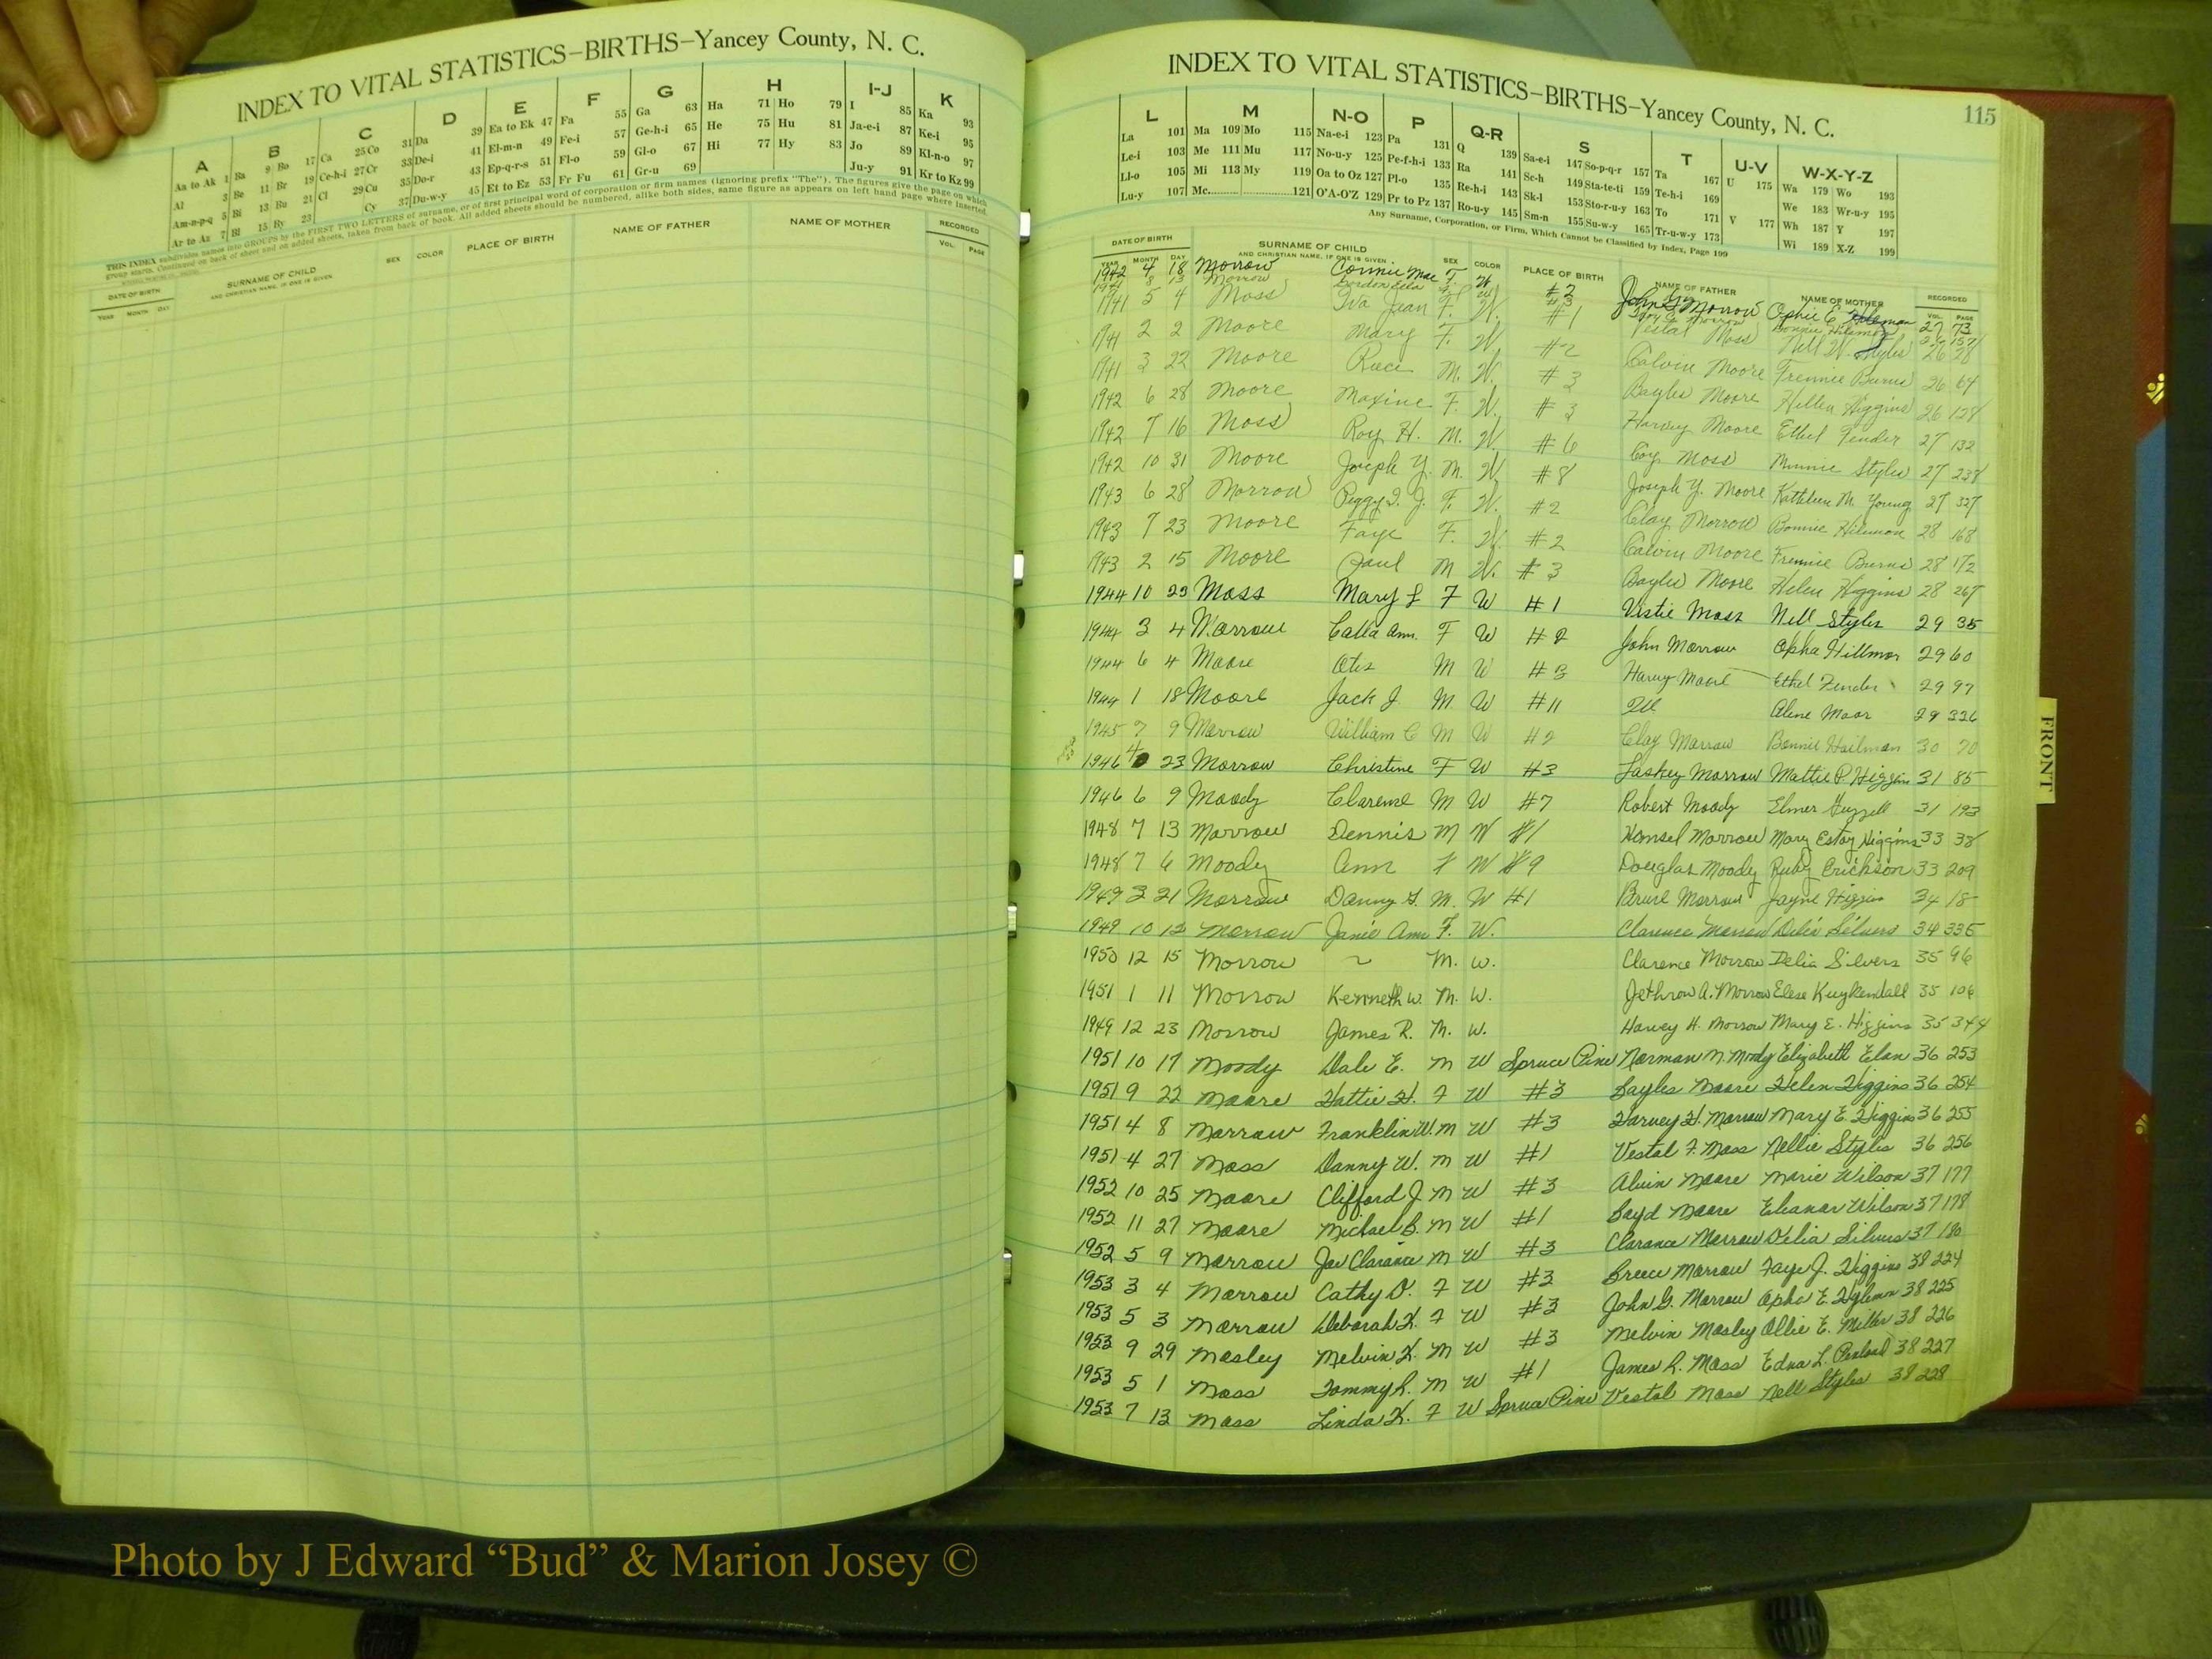 INDEX TO VITAL STATISTICS—BIRTHS—Yancey County, N. C.
A B C D E F G H I-J K
Aa to Ak 1 Ba 9 Bo 17 Ca 25 Co 31 Da 39 Ea to Ek 47 Fa 55 Ga 63 Ha 71 Ho 79 I 85 Ka 93
Al 3 Be 11 Br 19 Ce-h-i 27 Cr 33 De-i 41 El-m-n 49 Fe-i 57 Ge-h-i 65 He 75 Hu 81 Ja-e-i 87 Ke-i 95
Am-n-p-q 5 Bi 13 Bu 21 Cl 29 Cu 35 Do-r 43 Ep-q-r-s 51 Fl-o 59 Gl-o 67 Hi 77 Hy 83 Jo 89 Kl-n-o 97
Ar to Az 7 Bl 15 By 23 Cy 37 Du-w-y 45 Et to Ez 53 Fr Fu 61 Gr-u 69 Ju-y 91 Kr to Kz 99
THIS INDEX subdivides names into GROUPS by the FIRST TWO LETTERS of surname, or of first principal word of corporation or firm names (ignoring prefix "The"). The figures give the page on which
group starts. Continued on back of sheet and on added sheets, taken from back of book. All added sheets should be numbered, alike both sides, same figure as appears on left hand page where inserted.
DATE OF BIRTH SURNAME OF CHILD SEX COLOR PLACE OF BIRTH NAME OF FATHER NAME OF MOTHER RECORDED
YEAR MONTH DAY AND CHRISTIAN NAME, IF ONE IS GIVEN VOL. PAGE
INDEX TO VITAL STATISTICS—BIRTHS—Yancey County, N. C. 115
L M N-O P Q-R S T U-V W-X-Y-Z
La 101 Ma 109 Mo 115 Na-e-i 123 Pa 131 Q 139 Sa-e-i 147 So-p-q-r 157 Ta 167 U 175 Wa 179 Wo 193
Le-i 103 Me 111 Mu 117 No-u-y 125 Pe-f-h-i 133 Ra 141 Sc-h 149 Sta-te-ti 159 Te-h-i 169 We 183 Wr-u-y 195
Ll-o 105 Mi 113 My 119 Oa to Oz 127 Pl-o 135 Re-h-i 143 Sk-l 153 Sto-r-u-y 163 To 171 V 177 Wh 187 Y 197
Lu-y 107 Mc 121 O'A-O'Z 129 Pr to Pz 137 Ro-u-y 145 Sm-n 155 Su-w-y 165 Tr-u-w-y 173 Wi 189 X-Z 199
Any Surname, Corporation, or Firm, Which Cannot be Classified by Index, Page 199
DATE OF BIRTH SURNAME OF CHILD SEX COLOR PLACE OF BIRTH NAME OF FATHER NAME OF MOTHER RECORDED
YEAR MONTH DAY AND CHRISTIAN NAME, IF ONE IS GIVEN VOL. PAGE
1942 4 18 Morrow Connie Mae F W #2 John G. Morrow Ophie E. 27 73
1941 8 13 Morrow F W #3 Clay Morrow Bonnie 157
1941 5 4 Moss Iva Jean F. W. #1 Vestal Moss Nell W. Styles 26 28
1941 2 2 Moore Mary F. W. #2 Calvin Moore Frennie Burns 26 64
1941 3 22 Moore M. W. #3 Bayles Moore Hellen Higgins 26 128
1942 6 28 Moore Maxine F. W. #3 Harvey Moore Ethel Fender 27 132
1942 7 16 Moss Roy H. M. W. #6 Coy Moss Minnie Styles 27 238
1942 10 31 Moore Joseph Y. M. W. #8 Joseph Y. Moore Kathleen M. Young 27 327
1943 6 28 Morrow Peggy F. W. #2 Clay Morrow Bonnie Hileman 28 168
1943 7 23 Moore Faye F. W. #2 Calvin Moore Frennie Burns 28 172
1943 2 15 Moore Paul M W. #3 Bayles Moore Helen Higgins 28 267
1944 10 23 Moss Mary L F W #1 Vistie Moss Nell Styles 29 35
1944 3 4 Morrow Calla Ann. F W #2 John Morrow Opha Hillmon 29 60
1944 6 4 Moore Otis M W #3 Harvey Moore Ethel Fender 29 97
1944 1 18 Moore Jack J. M W #11 Ill Aline Moor 29 336
1945 7 9 Morrow William C M W #2 Clay Morrow Bonnie Hailman 30 70
1946 4 23 Morrow Christine F W #3 Laskey Morrow Mattie P. Higgins 31 85
1946 6 9 Moody Clarence M W #7 Robert Moody Elmer 31 193
1948 7 13 Morrow Dennis M W #1 Hensel Morrow Mary Estoy Higgins 33 38
1948 7 6 Moody Ann F W #9 Douglas Moody Ruby Erickson 33 209
1949 3 21 Morrow Danny G. M. W #1 Bruce Morrow Jayne Higgins 34 18
1949 10 12 Morrow Janie Ann F. W. Clarence Morrow Delia Silvers 34 335
1950 12 15 Morrow ~ M. W. Clarence Morrow Delia Silvers 35 96
1951 1 11 Morrow Kenneth W. M. W. Jethrow A. Morrow Elese Kuykendall 35 106
1949 12 23 Morrow James R. M. W. Harvey H. Morrow Mary E. Higgins 35 344
1951 10 17 Moody Dale E. M W Spruce Pine Norman N. Moody Elizabeth Elan 36 253
1951 9 22 Moore Hattie H. F W #3 Bayles Moore Helen Higgins 36 254
1951 4 8 Morrow Franklin W. M W #3 Harvey H. Morrow Mary E. Higgins 36 255
1951 4 27 Moss Danny W. M W #1 Vestal F. Moss Nellie Styles 36 256
1952 10 25 Moore Clifford J M W #3 Alvin Moore Marie Wilson 37 177
1952 11 27 Moore Michael B. M W #1 Boyd Moore Eleanor Wilson 37 178
1952 5 9 Morrow Joe Clarance M W #3 Clarance Morrow Delia Silvers 37 180
1953 3 4 Morrow Cathy D. F W #3 Breece Morrow Faye J. Higgins 38 224
1953 5 3 Morrow Deborah K. F W #3 John G. Morrow Opha E. 38 225
1953 9 29 Mosley Melvin K. M W #3 Melvin Mosley Ollie E. Miller 38 226
1953 5 1 Moss Tommy R. M W #1 James R. Moss Edna L. Penland 38 227
1953 7 13 Moss Linda K. F W Spruce Pine Vestal Moss Nell Styles 38 228
FRONT
Photo by J Edward “Bud” & Marion Josey ©